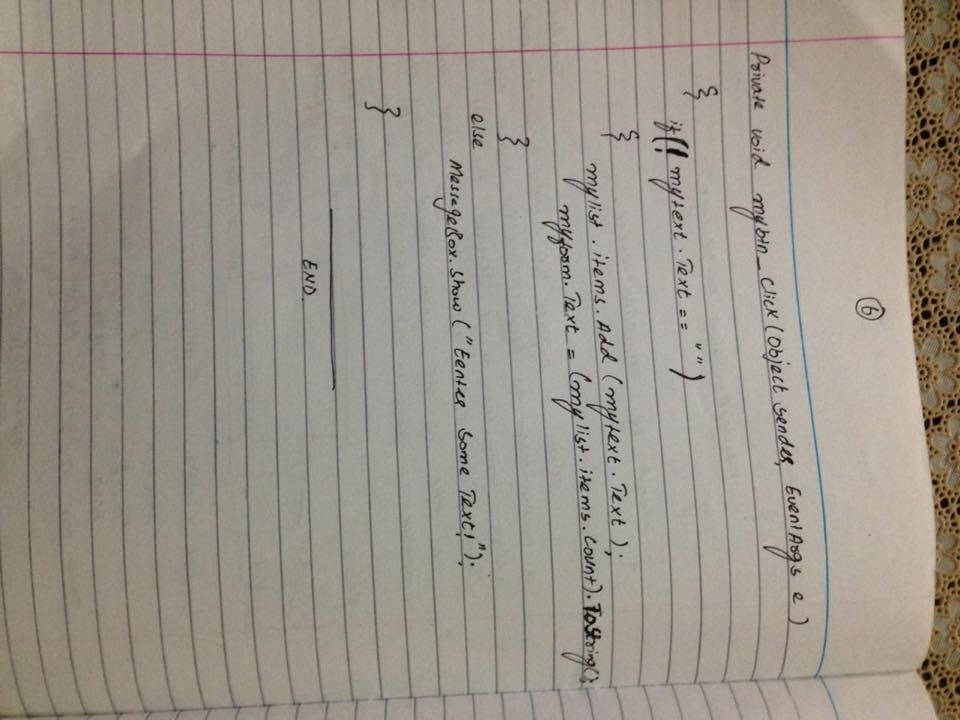 6
Private void mybtn_Click(Object sender, EventArgs e)
{
if(! mytext.Text == "")
{
mylist.items.Add(mytext.Text);
myform.Text = (mylist.items.count).ToString();
}
else
MessageBox.Show("Eenter some Text!");
}
END.